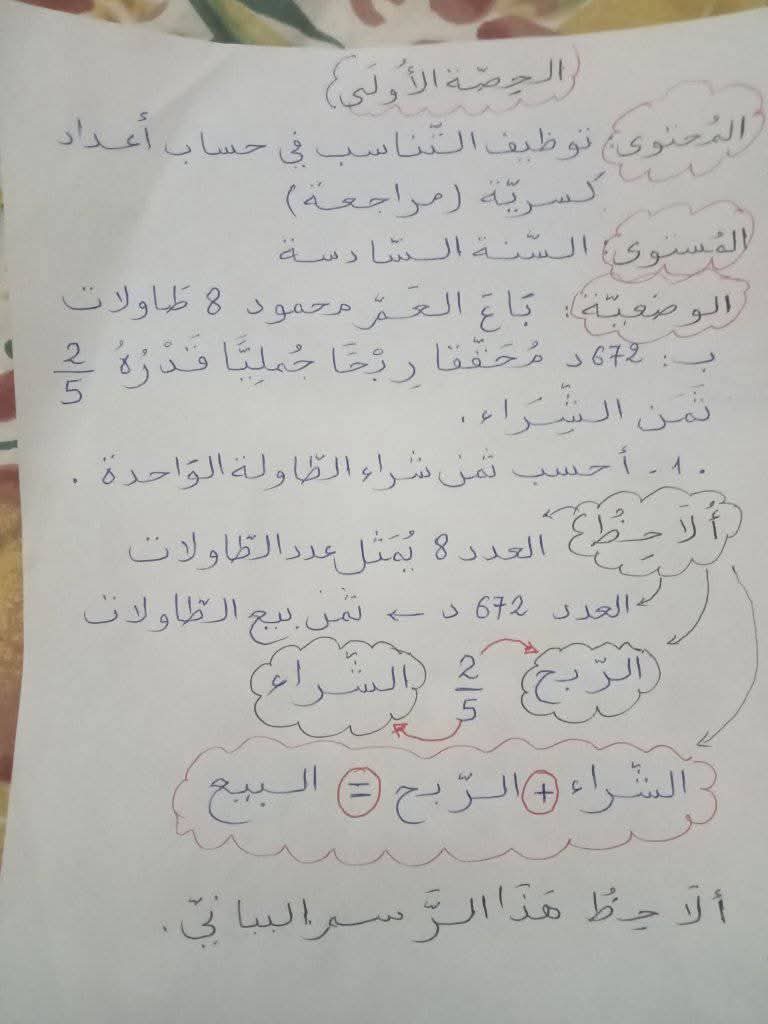 الحِصّة الأُولَى
المُحتوى: توظيف التّناسب في حساب أعداد
كسريّة (مراجعة)
المُستوى: السّنة السّادسة
الوضعيّة: بَاعَ العَمّ محمود 8 طَاولات
ب: 672 د مُحَقّقا رِبْحًا جُمليًّا قَدْرُهُ 2/5
ثَمَن الشِّرَاء.
1 - أحسب ثمن شراء الطّاولة الوَاحدة.
أُلَاحِظُ العدد 8 يُمَثل عدد الطّاولات
العدد 672 د ← ثمن بيع الطّاولات
الرّبح 2/5 الشّراء
الشّراء + الرّبح = البيع
ألَاحِظُ هَذَا الرَّسم البيانيّ.